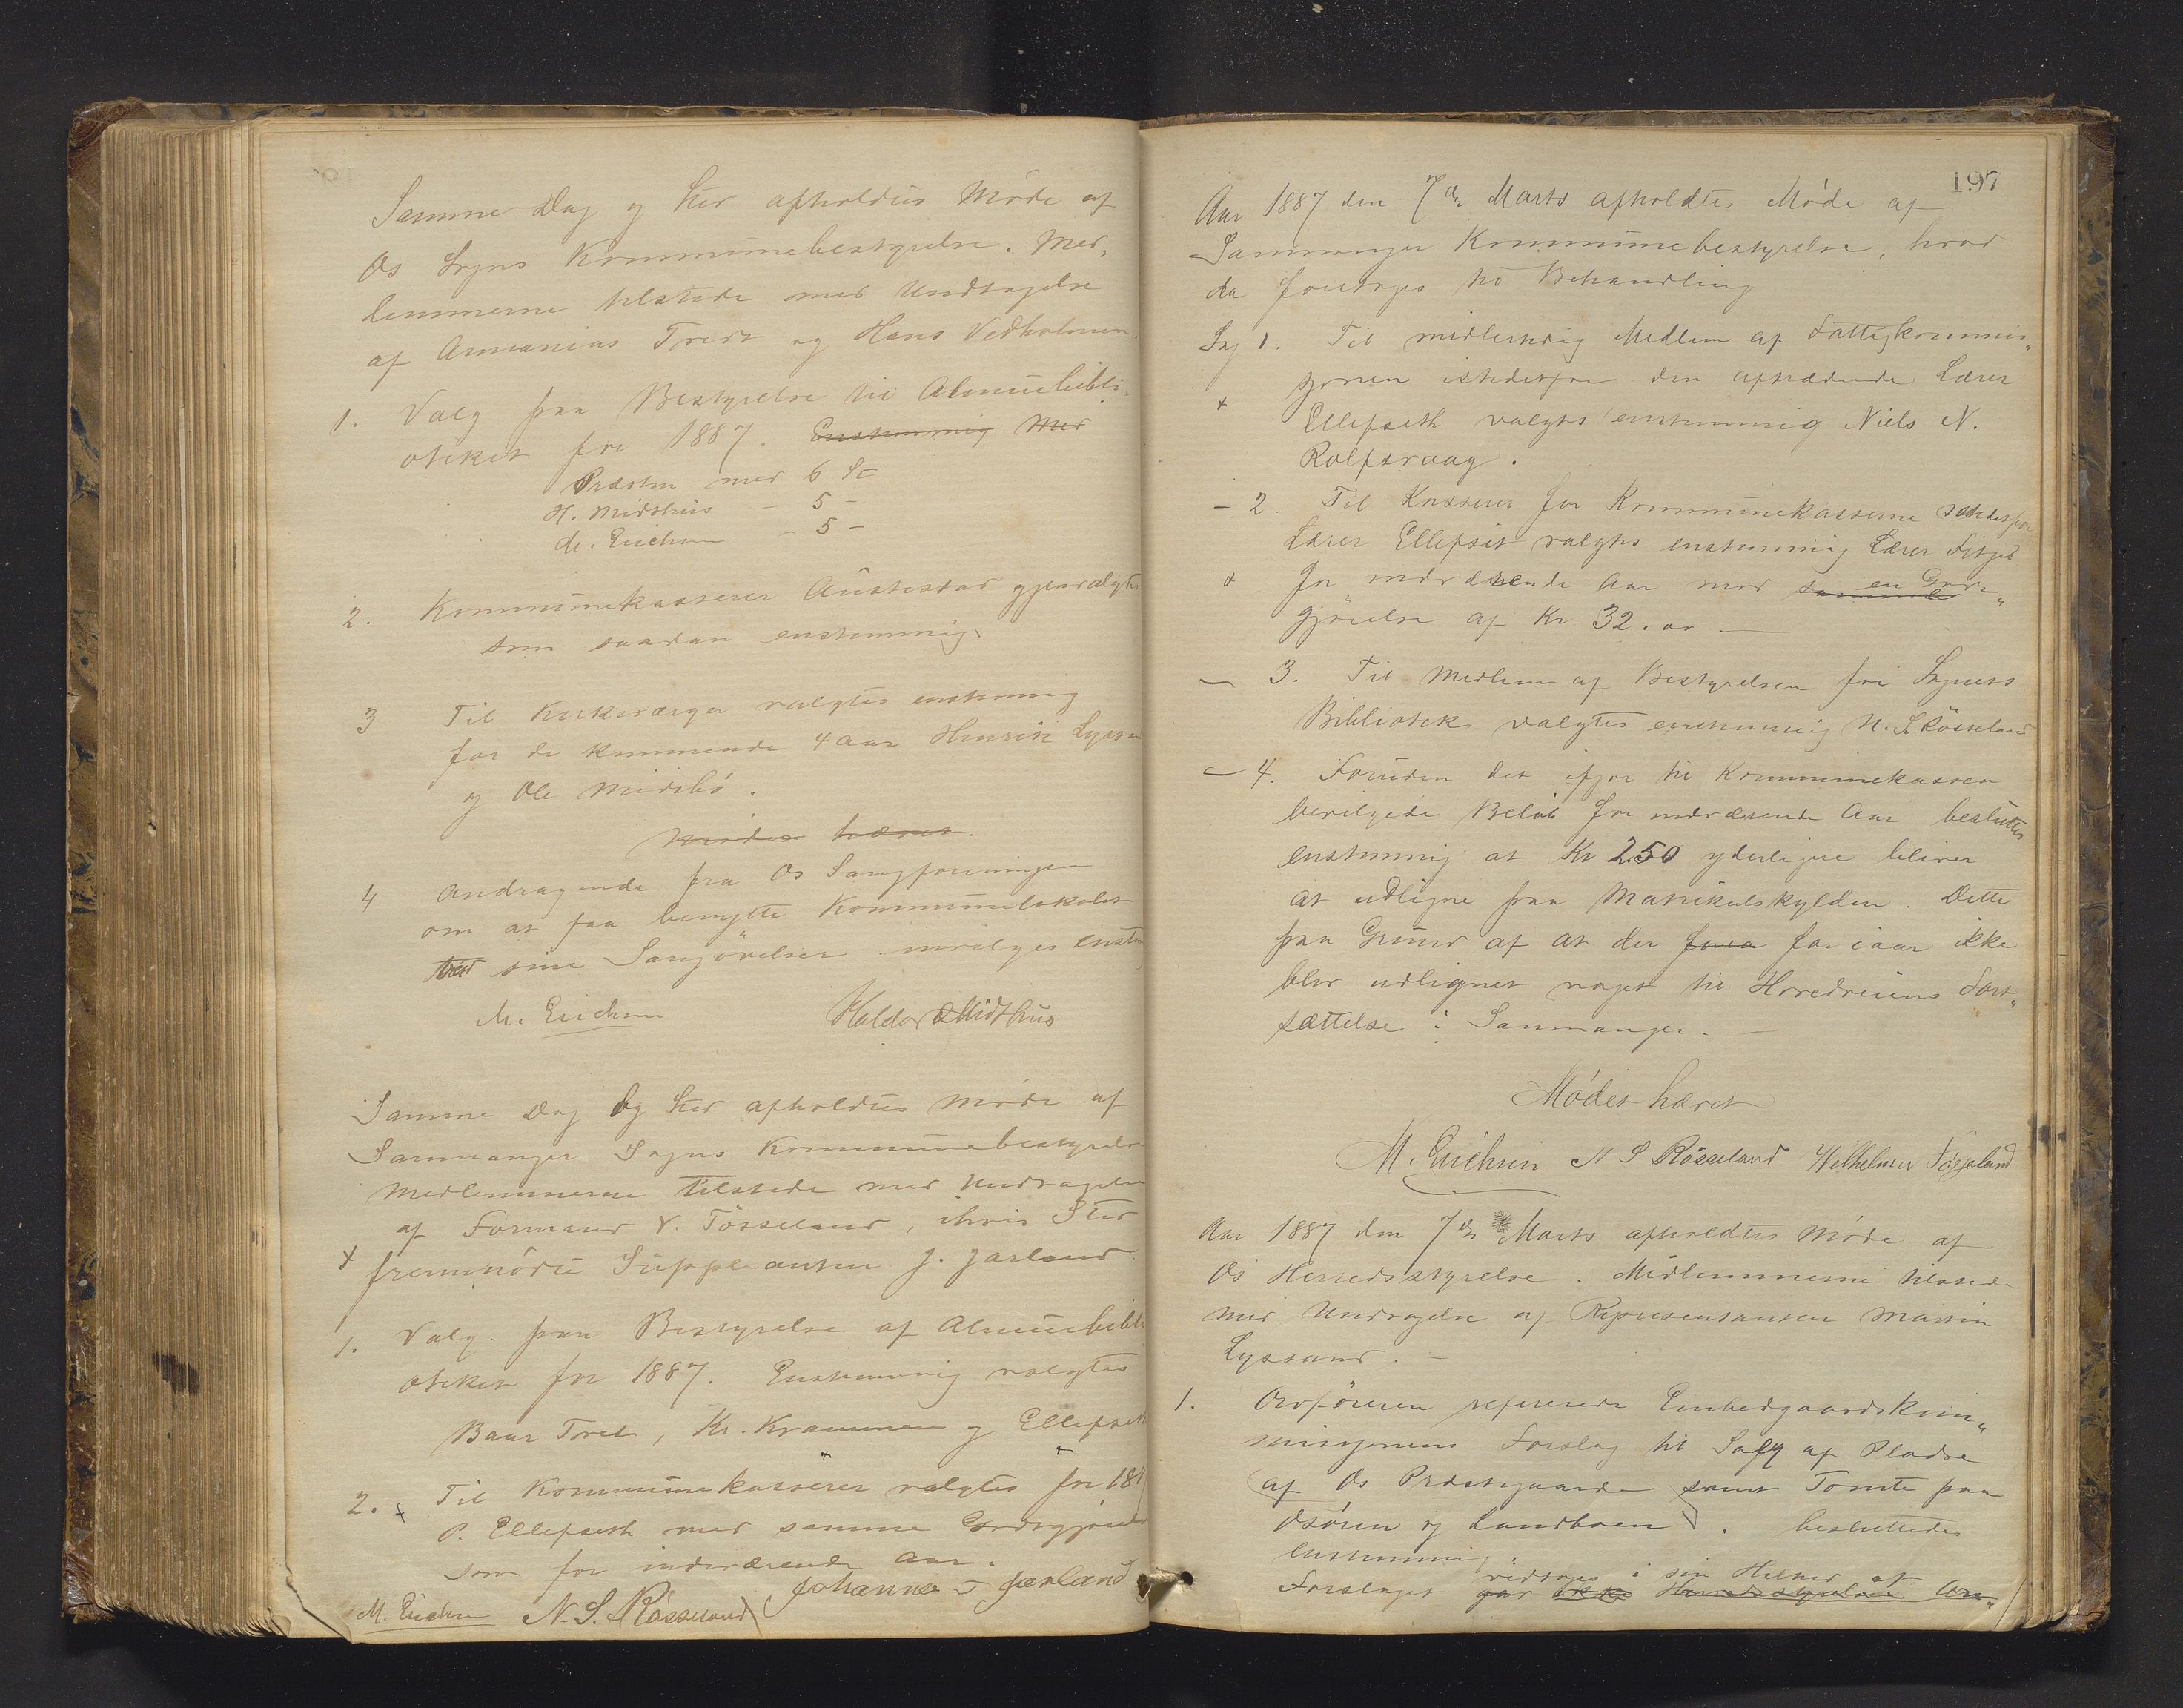 Samme Dag og Sted afholdtes Møde af
Os Sogns Kommunebestyrelse. Med-
lemmerne tilstede med Undtagelse
af Annanias Tveit og Hans Vedholmen.
1. Valg paa Bestyrelse til Almuebibli-
oteket for 1887. Enstemmig Med
Præsten med 6 St
H. Midthus - 5 -
M. Erichsen - 5 -
2. Kommunekasserer Austestad gjenvalgtes
som saadan enstemmig.
3 Til Kirkeværger valgtes enstemmig
for de kommende 4 aar Henrik Lyssan
og Ole Midtbö.
Mødet hævet.
4 Andragende fra Os Sangforeningen
om at faa benytte Kommunelokalet
ved sine Sangövelser indvilges enstm
M. Erichsen Haldor Midthus
Samme Dag og Sted afholdtes Møde af
Samnanger Sogns Kommunebestyrelse
Medlemmerne tilstede med Undtagelse
af Formand V. Tösseland, i hvis Sted
+ fremmødte Suppleanten J. Jarland
1. Valg paa Bestyrelse af Almuebibli
oteket for 1887. Enstemmig valgtes
Baar Tveit, Kr. Krammen og Ellefset
2. + Til Kommunekasserer valgtes for 188
P. Ellefseth med samme Godtgjørelse
som for indeværende Aar.
M. Erichsen N. S. Rösseland Johannes J Jarland
197
Aar 1887 den 7de Marts afholdtes Møde af
Samnanger Kommunebestyrelse, hvor
da foretoges til Behandling
Sag 1. Til midlertidig Medlem af Fattigkommis-
sjonen istedetfor den aftrædende Lærer
+ Ellefseth valgtes enstemmig Niels N.
Rolfsvaag.
- 2. Til Kasserer for Kommunekasserne istedetfor
Lærer Ellefset valgtes enstemmig Lærer Fitje
+ for indeværende Aar mod samme en Godt-
gjørelse af Kr 32.00 -
- 3. Til Medlem af Bestyrelsen for Sognets
Bibliotek valgtes enstemmig N. S. Rösseland
- 4. Foruden det ifjor til Kommunekassen
bevilgede Beløb for indeværende Aar besluttes
enstemmig at Kr 250 yderligere bliver
at udligne paa Matrikulskylden. Dette
paa Grund af at der for iaar ikke
blev udlignet noget til Hovedveiens Fort-
sættelse i Samnanger. -
Mødet hævet
M. Erichsen N S Rösseland Wilhelm Tösseland
Aar 1887 den 7de Marts afholdtes Møde af
Os Herredsstyrelse. Medlemmerne tilstede
med Undtagelse af Repræsentanten Martin
Lyssand. -
1. Ordføreren refererede Embedgaardskom-
missjonens Forslag til Salg af Pladse
af Os Præstegaard samt Tomte paa
Osören og Landboen. besluttedes
enstemmig:
Forslaget vedtages i sin Helhed at
gav ikke Herredsstyrelsen